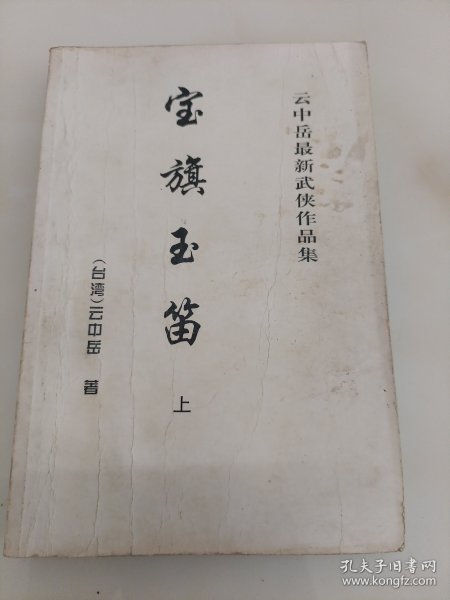 云中岳最新武侠作品集
宝旗玉笛
上
(台湾)云中岳 著
孔夫子旧书网
www.kongfz.com